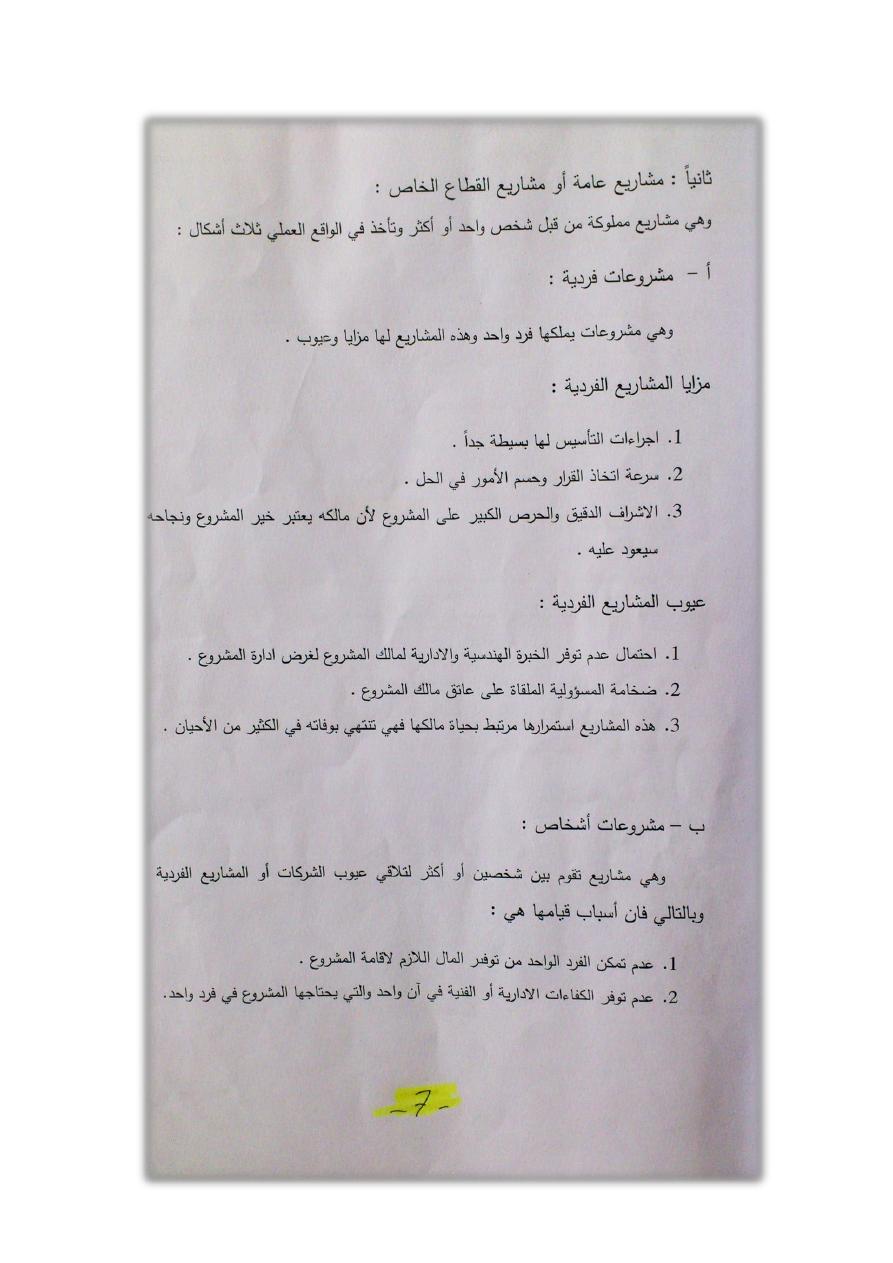 ثانياً : مشاريع عامة أو مشاريع القطاع الخاص :
وهي مشاريع مملوكة من قبل شخص واحد أو أكثر وتأخذ في الواقع العملي ثلاث أشكال :
أ – مشروعات فردية :
وهي مشروعات يملكها فرد واحد وهذه المشاريع لها مزايا وعيوب .
مزايا المشاريع الفردية :
1. اجراءات التأسيس لها بسيطة جداً .
2. سرعة اتخاذ القرار وحسم الأمور في الحل .
3. الاشراف الدقيق والحرص الكبير على المشروع لأن مالكه يعتبر خير المشروع ونجاحه
سيعود عليه .
عيوب المشاريع الفردية :
1. احتمال عدم توفر الخبرة الهندسية والادارية لمالك المشروع لغرض ادارة المشروع .
2. ضخامة المسؤولية الملقاة على عاتق مالك المشروع .
3. هذه المشاريع استمرارها مرتبط بحياة مالكها فهي تنتهي بوفاته في الكثير من الأحيان .
ب – مشروعات أشخاص :
وهي مشاريع تقوم بين شخصين أو أكثر لتلاقي عيوب الشركات أو المشاريع الفردية
وبالتالي فان أسباب قيامها هي :
1. عدم تمكن الفرد الواحد من توفير المال اللازم لاقامة المشروع .
2. عدم توفر الكفاءات الادارية أو الفنية في آن واحد والتي يحتاجها المشروع في فرد واحد.
- 7 -